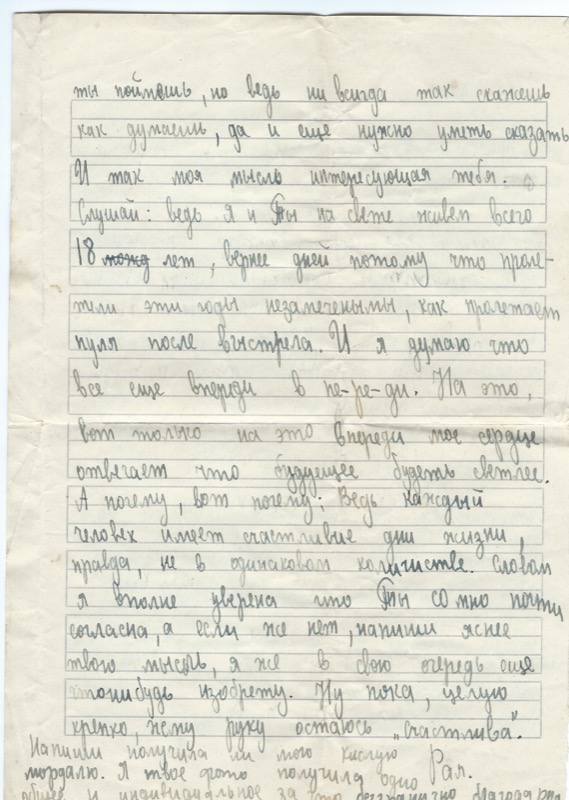 ты поймешь, но ведь ни всигда так скажешь
как думаешь, да и еще нужно уметь сказать
И так моя мысль интересующая тебя.
Слушай: ведь я и Ты на свете живем всего
18 лет, вернее дней потому что проле-
тели эти годы незамеченымы, как пролетает
пуля после выстрела. И я думаю что
все еще впереди в пе-ре-ди. На это,
вот только на это впереди мое сердце
отвечает что будущее будеть светлее.
А почему, вот почему: Ведь каждый
человек имеет счастливие дни жизни,
правда, не в одинаковом количистве. Словом
я вполне уверена что Ты со мно почти
согласна, а если же нет, напиши яснее
твою мысль, я же в свою очередь еще
чтонибудь изобрету. Ну пока, целую
крепко, жму руку остаюсь „счастлива".
Напиши получила ли мою кислую Рая.
мордалю. Я твое фото получила одно
общее и индивидуальное за что